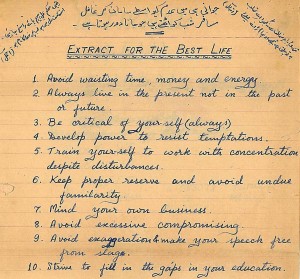 جوانی ہی میں عدم کے واسطے سامان کر غافل
مسافر شب کو اٹھتے ہیں جو جانا دور ہوتا ہے
EXTRACT FOR THE BEST LIFE
1. Avoid waisting time, money and energy
2. Always live in the present not in the past
or future.
3. Be critical of your-self (always)
4. Develop power to resist temptations.
5. Train your-self to work with concentration
despite disturbances.
6. Keep proper reserve and avoid undue
familiarity.
7. Mind your own business.
8. Avoid excessive compromising.
9. Avoid exaggeration & make your speech free
from stage.
10. Strive to fill in the gaps in your education.